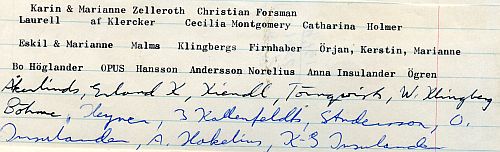 Karin & Marianne Zelleroth Christian Forsman
Laurell af Klercker Cecilia Montgomery Catharina Holmer
Eskil & Marianne Malms Klingbergs Firnhaber Örjan, Kerstin, Marianne
Bo Höglander OPUS Hansson Andersson Norelius Anna Insulander Ögren
Åkerlinds, Erlund K, Kiendl, Törnqvist, W. Klingberg
Böhme, Heyner, 3 Kallenfeldts, Studensson, O.
Insulander, A. Hakelius, K-G Insulander